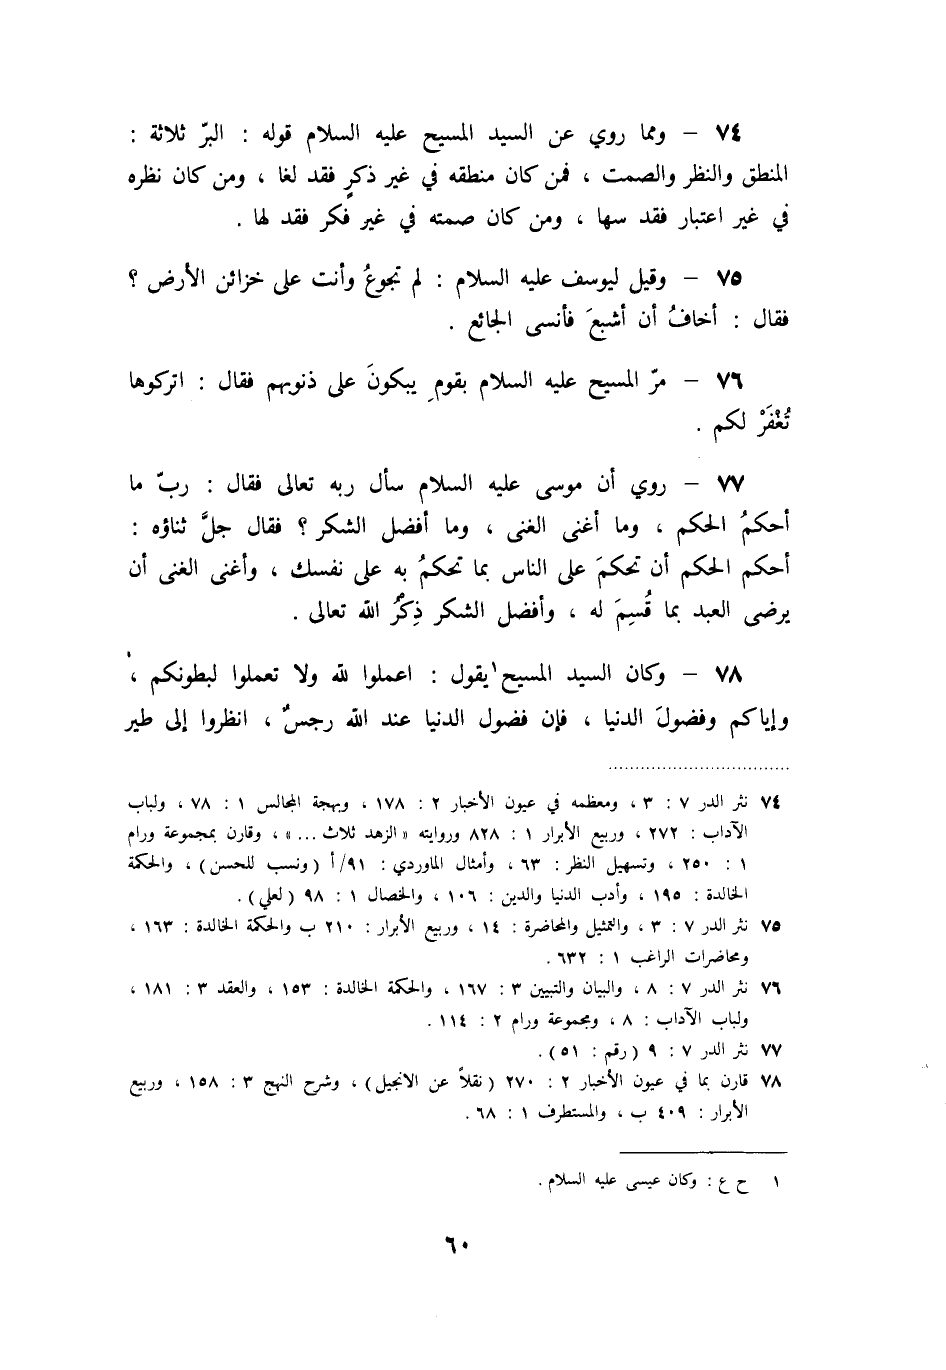 ٧٤ – ومما روي عن السيد المسيح عليه السلام قوله : البرّ ثلاثة :
المنطق والنظر والصمت ، فمن كان منطقه في غير ذكرٍ فقد لغا ، ومن كان نظره
في غير اعتبار فقد سها ، ومن كان صمته في غير فكر فقد لها .
٧٥ – وقيل ليوسف عليه السلام : لم تجوعُ وأنت على خزائن الأرض ؟
فقال : أخافُ أن أشبعَ فأنسى الجائع .
٧٦ – مرّ المسيح عليه السلام بقومٍ يبكونَ على ذنوبهم فقال : اتركوها
تُغْفَرْ لكم .
٧٧ – روي أن موسى عليه السلام سأل ربه تعالى فقال : ربّ ما
أحكمُ الحكم ، وما أغنى الغنى ، وما أفضل الشكر ؟ فقال جلَّ ثناؤه :
أحكم الحكم أن تحكمَ على الناس بما تحكمُ به على نفسك ، وأغنى الغنى أن
يرضى العبد بما قُسِمَ له ، وأفضل الشكر ذِكْرُ الله تعالى .
٧٨ – وكان السيد المسيح١ يقول : اعملوا لله ولا تعملوا لبطونكم ،
وإياكم وفضولَ الدنيا ، فإن فضول الدنيا عند الله رجسٌ ، انظروا إلى طير
٧٤ نثر الدر ٧ : ٣ ، ومعظمه في عيون الأخبار ٢ : ١٧٨ ، وبهجة المجالس ١ : ٧٨ ، ولباب
الآداب : ٢٧٢ ، وربيع الأبرار ١ : ٨٢٨ وروايته « الزهد ثلاث ... » ، وقارن بمجموعة ورام
١ : ٢٥٠ ، وتسهيل النظر : ٦٣ ، وأمثال الماوردي : ٩١/أ ( ونسب للحسن ) ، والحكمة
الخالدة : ١٩٥ ، وأدب الدنيا والدين : ١٠٦ ، والخصال ١ : ٩٨ ( لعلي ) .
٧٥ نثر الدر ٧ : ٣ ، والتمثيل والمحاضرة : ١٤ ، وربيع الأبرار : ٢١٠ ب والحكمة الخالدة : ١٦٣ ،
ومحاضرات الراغب ١ : ٦٣٢ .
٧٦ نثر الدر ٧ : ٨ ، والبيان والتبيين ٣ : ١٦٧ ، والحكمة الخالدة : ١٥٣ ، والعقد ٣ : ١٨١ ،
ولباب الآداب : ٨ ، ومجموعة ورام ٢ : ١١٤ .
٧٧ نثر الدر ٧ : ٩ ( رقم : ٥١ ) .
٧٨ قارن بما في عيون الأخبار ٢ : ٢٧٠ ( نقلاً عن الانجيل ) ، وشرح النهج ٣ : ١٥٨ ، وربيع
الأبرار : ٤٠٩ ب ، والمستطرف ١ : ٦٨ .
١ ح ع : وكان عيسى عليه السلام .
٦٠